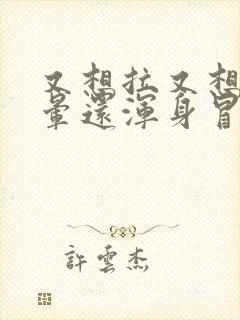 又想拉又想
暈還渾身冒
許雲杰